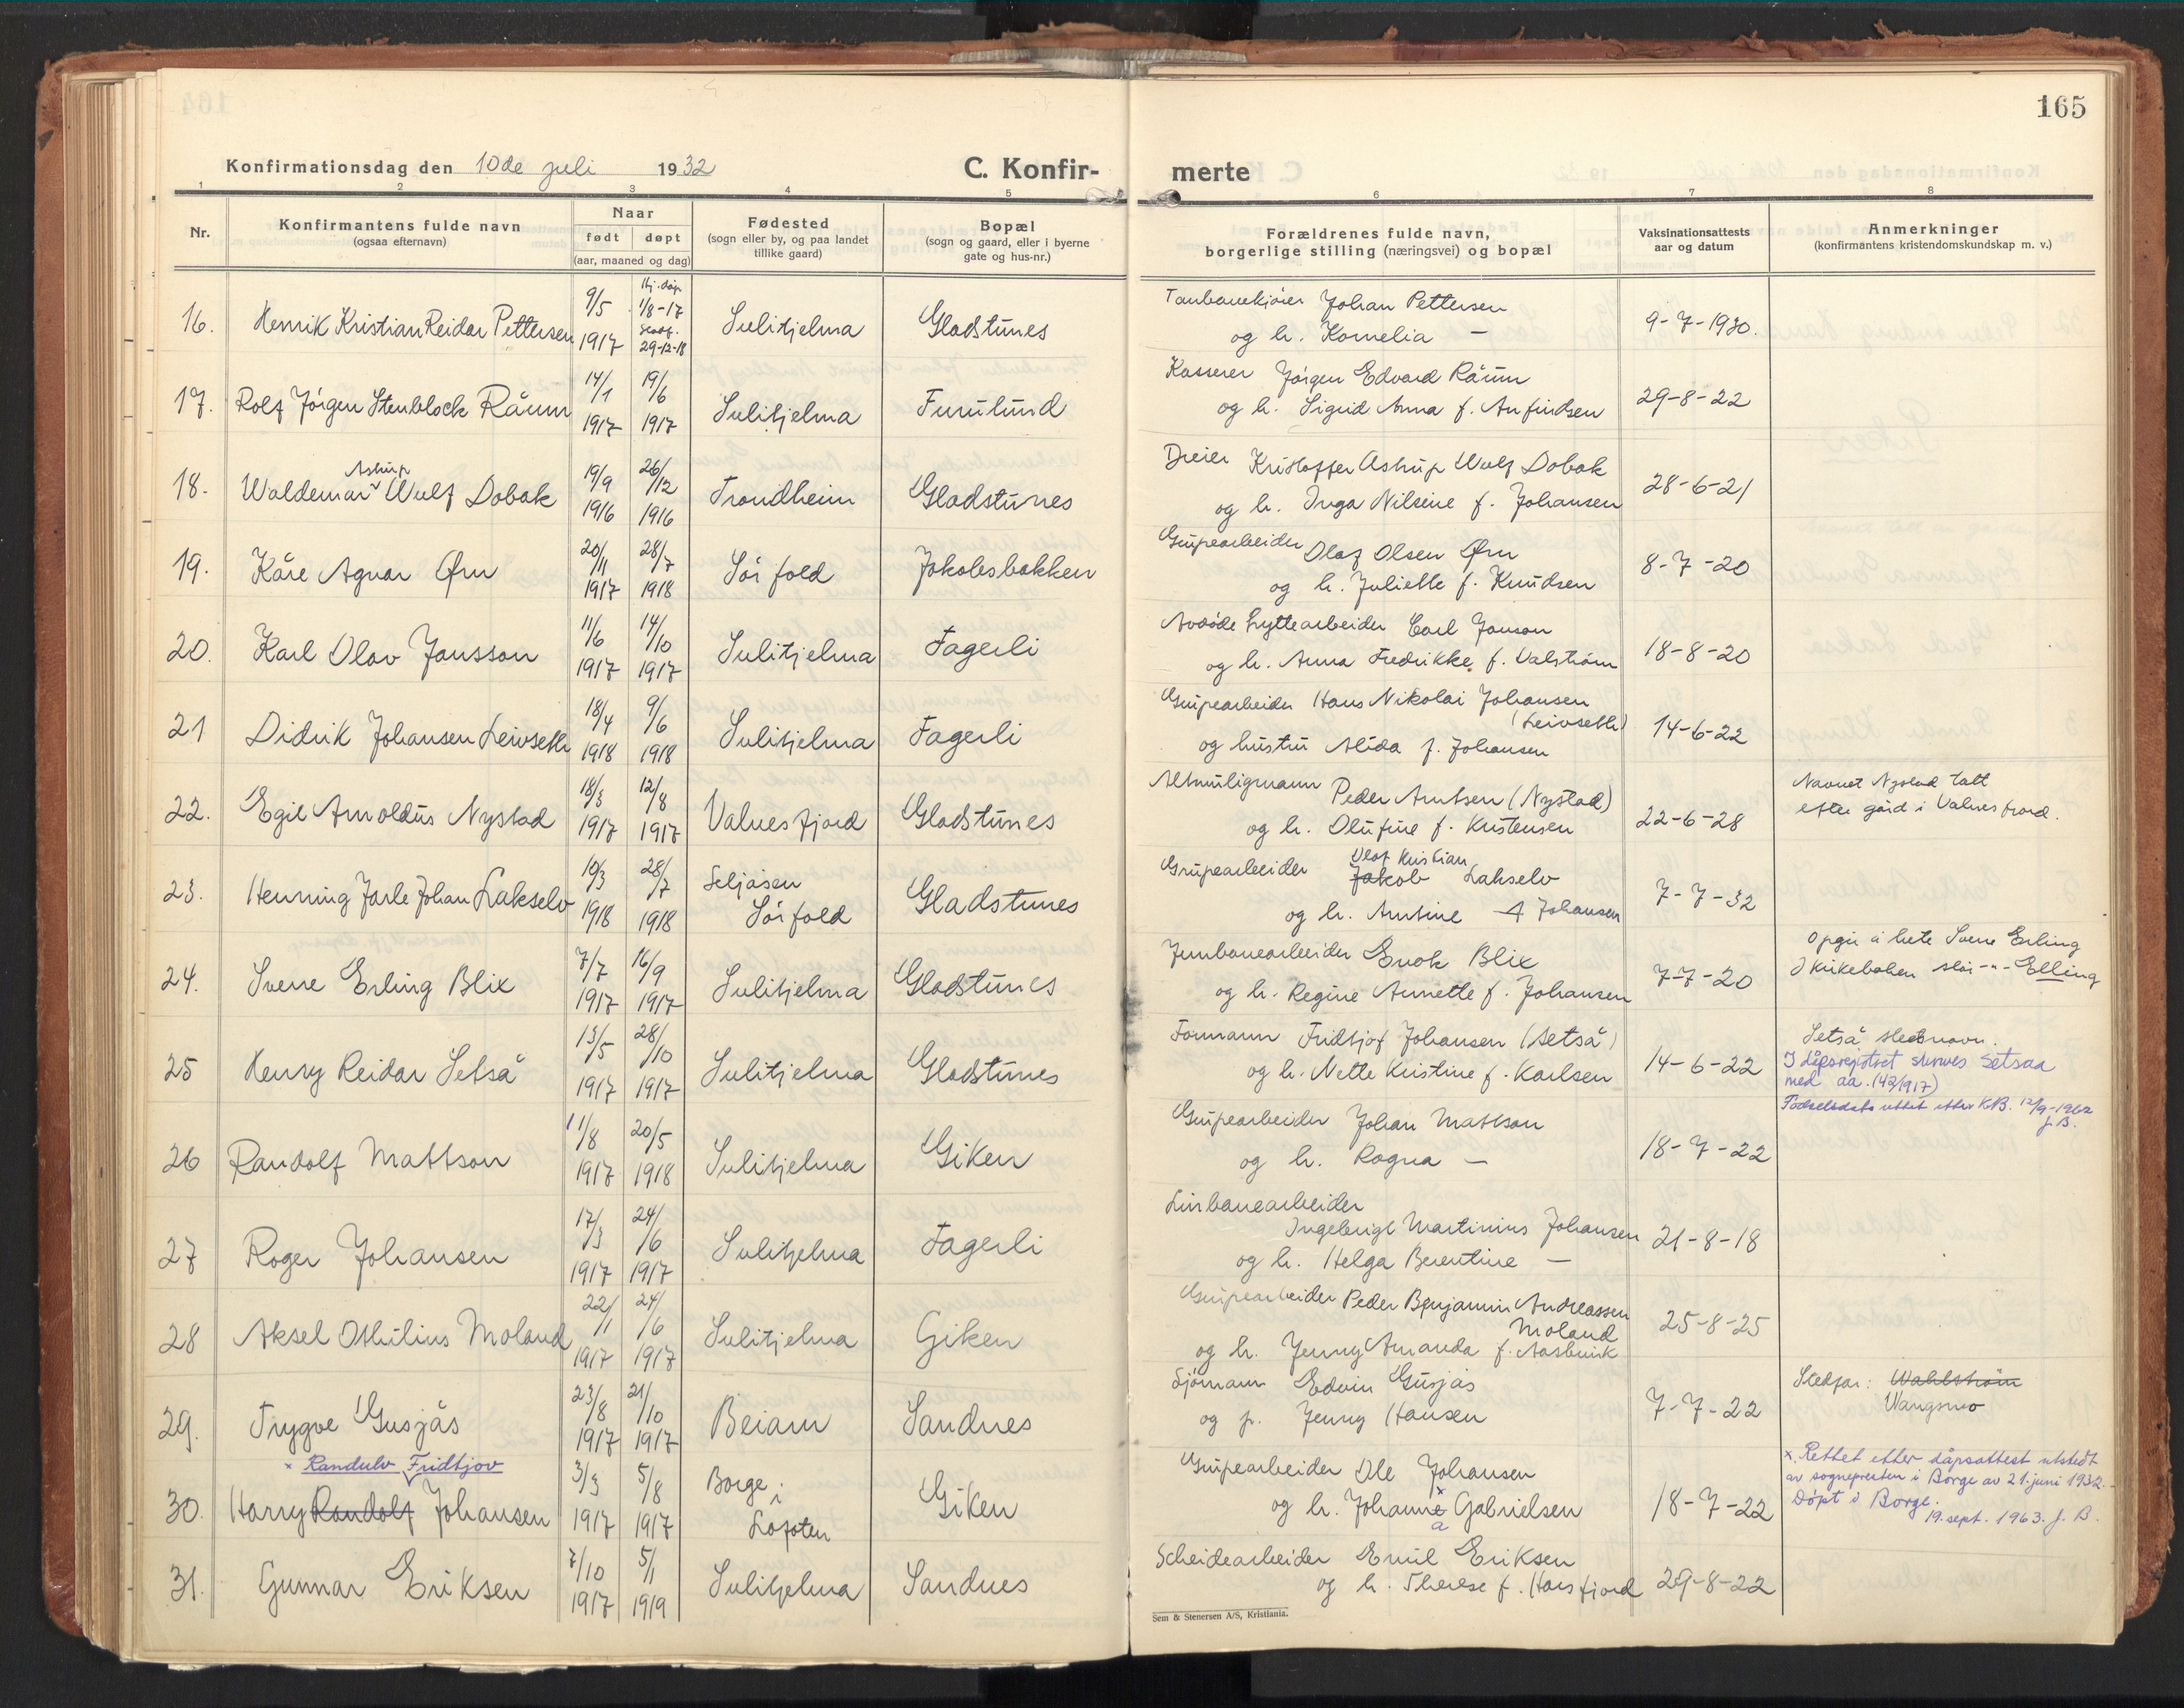 165
Konfirmationsdag den 10de juli 1932
C. Konfir-
merte
1 2 3 4 5 6 7 8
Nr.
Konfirmantens fulde navn
(ogsaa efternavn)
Naar
født døpt
(aar, maaned og dag)
Fødested
(sogn eller by, og paa landet
tillike gaard)
Bopæl
(sogn og gaard, eller i byerne
gate og hus-nr.)
Forældrenes fulde navn,
borgerlige stilling (næringsvei) og bopæl
Vaksinationsattests
aar og datum
Anmerkninger
(konfirmantens kristendomskundskap m. v.)
16. Henrik Kristian Reidar Pettersen 9/5 1917 Hj. døp 1/8-17 Stadf. 29-12-18 Sulitjelma Gladstunes
Taubanekjører Johan Pettersen
og h. Kornelia — 9-7-1930.
17. Rolf Jörgen Stenblock Råum 14/1 1917 19/6 1917 Sulitjelma Furulund
Kasserer Jörgen Edvard Råum
og h. Sigrid Anna f. Anfindsen 29-8-22
18. Waldemar Astrup Wulf Dobak 19/9 1916 26/12 1916 Trondheim Gladstunes
Dreier Kristoffer Astrup Wulf Dobak
og h. Inga Nilsine f. Johansen 28-6-21
19. Kåre Agnar Ørn 20/11 1917 28/7 1918 Sörfold Jakobsbakken
Grupearbeider Olaf Olsen Ørn
og h. Juliette f. Knudsen 8-7-20
20. Karl Olav Jansson 11/6 1917 14/10 1917 Sulitjelma Fagerli
Avdöde hyttearbeider Carl Janson
og h. Anna Fredrikke f. Valström 18-8-20
21 Didrik Johansen Leivseth 18/4 1918 9/6 1918 Sulitjelma Fagerli
Grupearbeider Hans Nikolai Johansen
(Leivseth)
og hustru Alida f. Johansen 14-6-22
22. Egil Arnoldus Nystad 18/3 1917 12/8 1917 Valnesfjord Gladstunes
Altmuligmann Peder Arntsen (Nystad)
og h. Olufine f. Kristensen 22-6-28
Navnet Nystad tatt
efter gård i Valnesfjord.
23. Henning Jarle Johan Lakselv 10/3 1918 28/7 1918 Seljåsen
Sörfold Gladstunes
Olaf Kristian
Grupearbeider Jakob Lakselv
og h. Arntine f Johansen 7-7-32
24. Sverre Erling Blix 7/7 1917 16/9 1917 Sulitjelma Gladstunes
Jernbanearbeider Enok Blix
og h. Regine Annette f. Johansen 7-7-20
Opgir å hete Sverre Erling
I kirkeboken står -"- Elling
25 Henry Reidar Setså 13/5 1917 28/10 1917 Sulitjelma Gladstunes
Formann Fridtjof Johansen (Setså)
og h. Nette Kristine f. Karlsen 14-6-22
Setså stedsnavn.
I dåpsregistret skrives Setsaa
med aa. (43/1917)
Fødselsdato rettet etter KB. 12/9-1962
J.B.
26 Randolf Mattson 11/8 1917 20/5 1918 Sulitjelma Giken
Grupearbeider Johan Mattson
og h. Ragna — 18-7-22
27 Roger Johansen 17/3 1917 24/6 1917 Sulitjelma Fagerli
Linbanearbeider
Ingebrigt Martinius Johansen
og h. Helga Berentine — 21-8-18
28 Aksel Othilius Moland 22/1 1917 24/6 1917 Sulitjelma Giken
Grupearbeider Peder Benjamin Andreassen
Moland
og h. Jenny Amanda f. Aasbrink 25-8-25
29. Trygve Gusjås 23/8 1917 21/10 1917 Beiarn Sandnes
Sjömann Edvin Gusjås
og p. Jenny Hansen 7-7-22
Stedfar: Wahlström
Wangsmo
x Randulv Fridtjov
30. Harry Randolf Johansen 3/3 1917 5/8 1917 Borge i
Lofoten Giken
Grupearbeider Ole Johansen
og h. Johanne x Gabrielsen 18-7-22
a
x. Rettet etter dåpsattest utstedt
av sognepresten i Borge av 21. juni 1932.
Døpt i Borge.
19. sept. 1963. J. B.
31. Gunnar Eriksen 7/10 1917 5/1 1919 Sulitjelma Sandnes
Scheidearbeider Emil Eriksen
og h. Therese f. Harsfjord 29-8-22
Sem & Stenersen A/S, Kristiania.